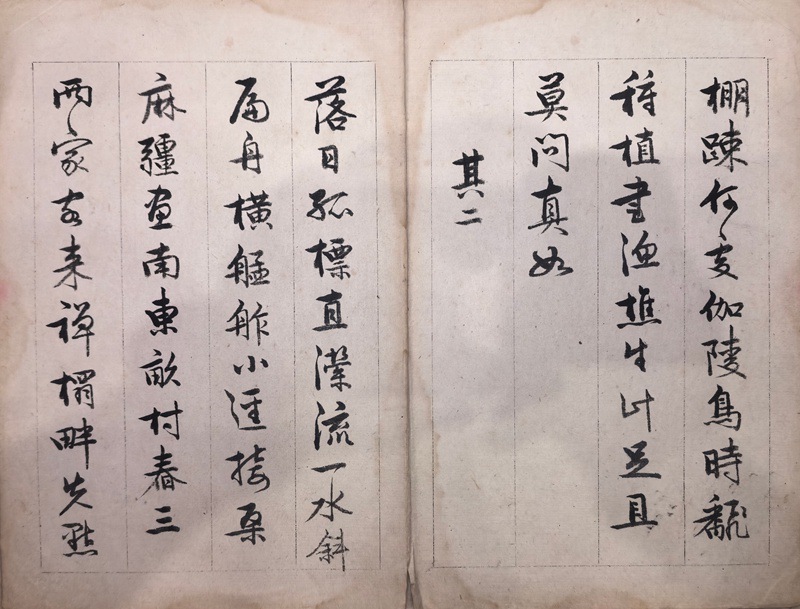 棚疎何處伽陵鳥時翻
種植書漁樵生計足且
莫問真如
其二
落日孤標直瀠流一水斜
扁舟橫艋舴小逕接桑
麻疆畫南東畝村舂三
兩家客來禪榻畔先點